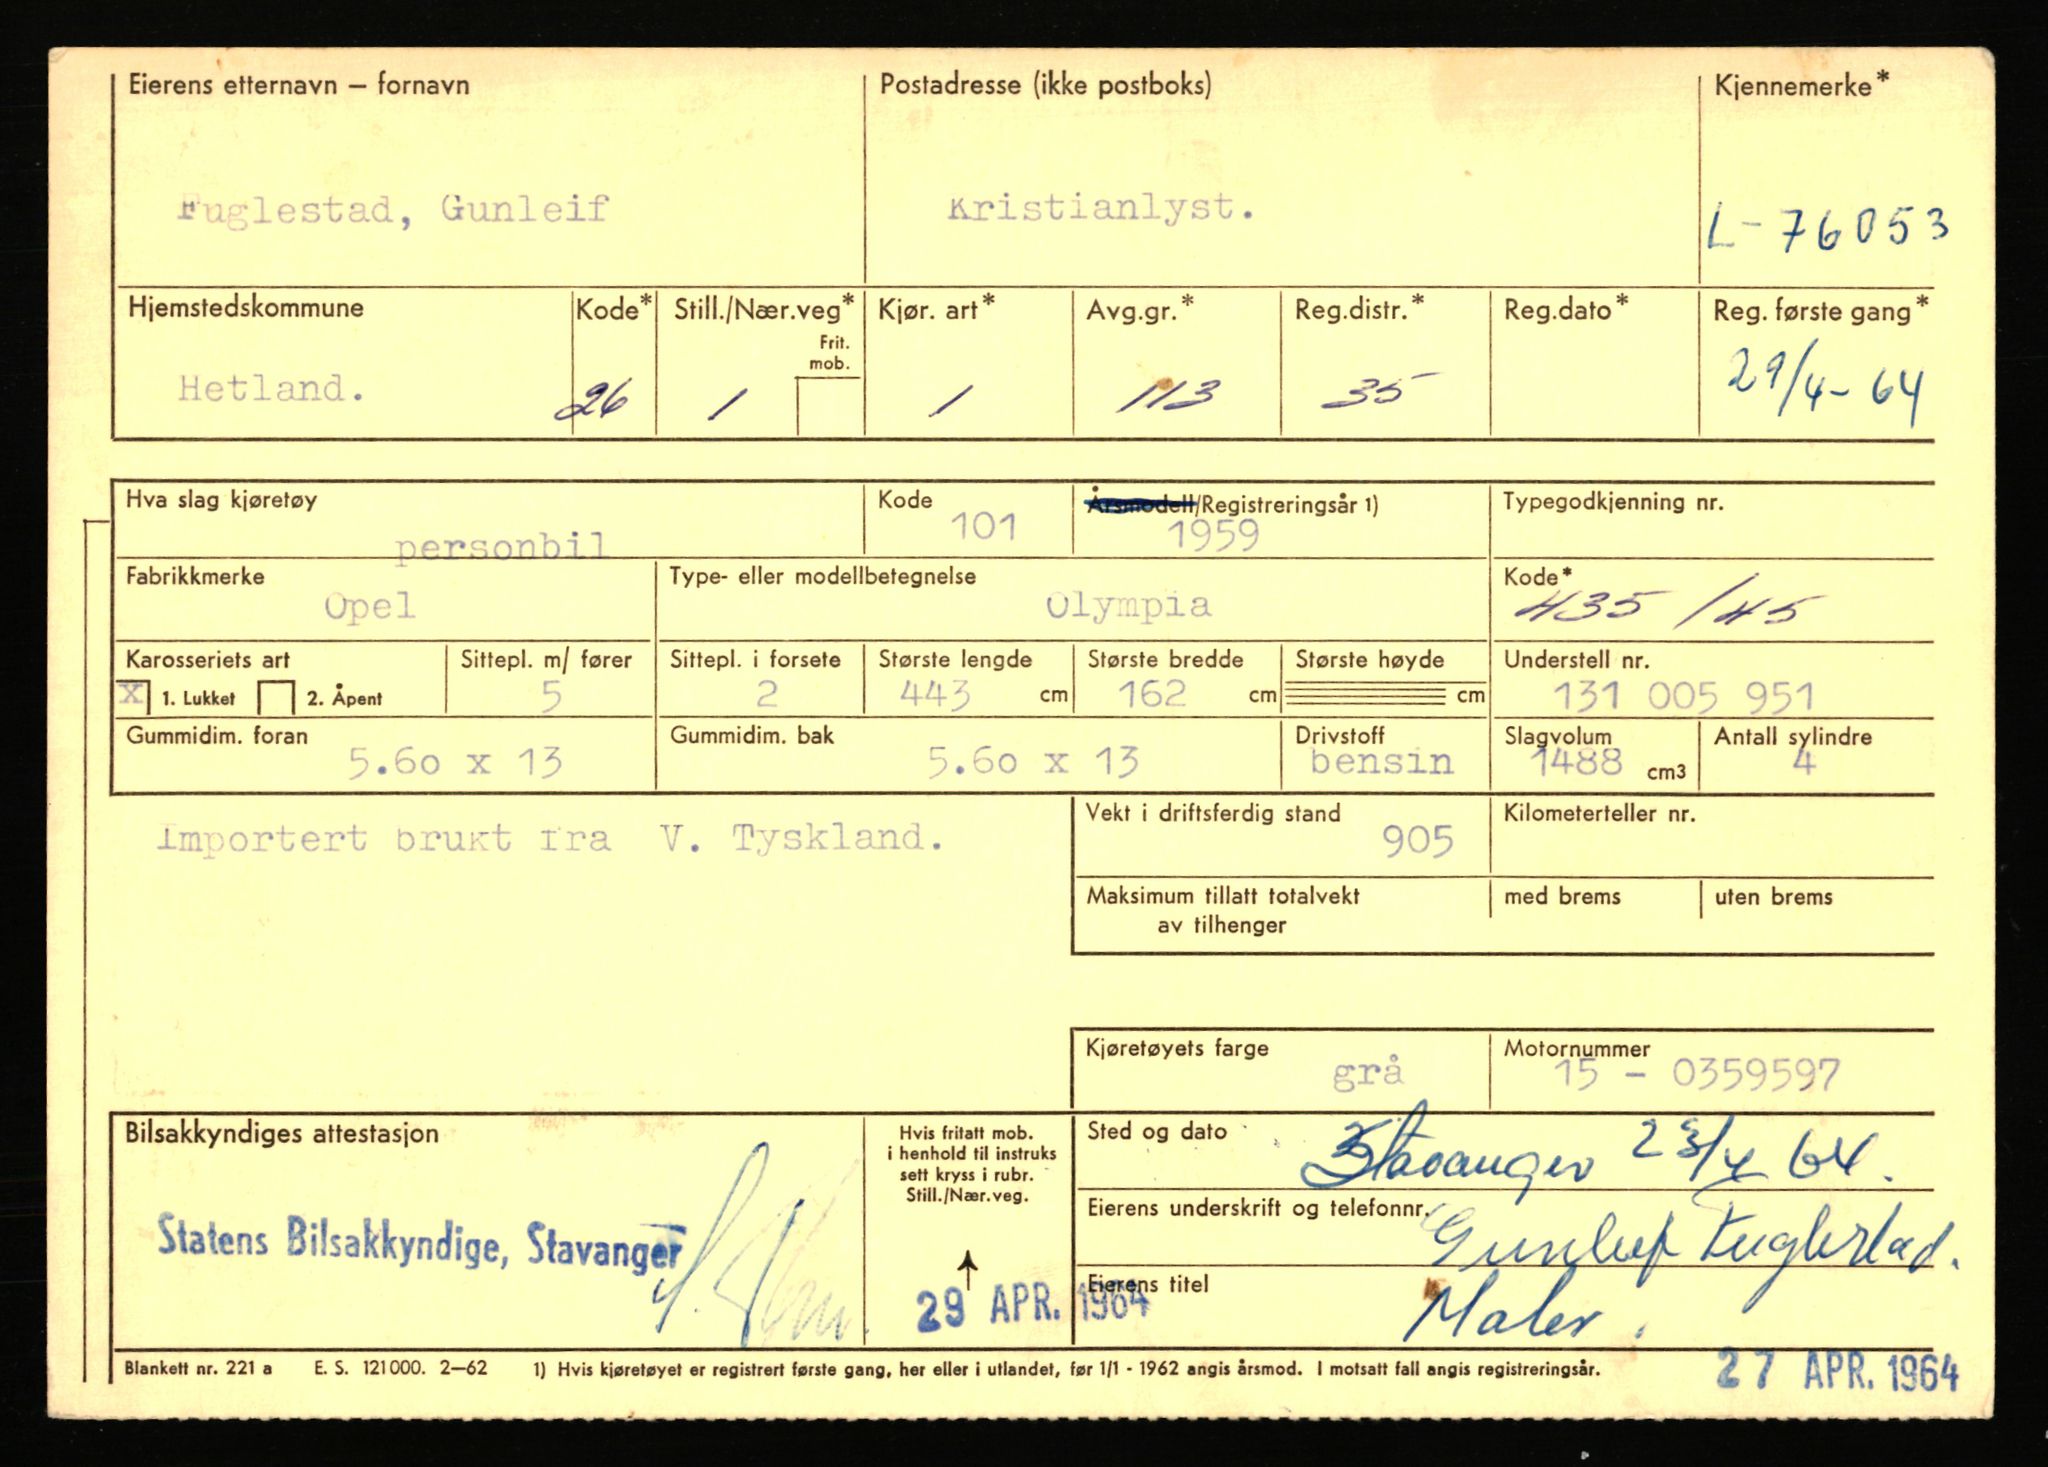 Eierens etternavn – fornavn Postadresse (ikke postboks) Kjennemerke*
Fuglestad, Gunleif Kristianlyst. L-76053
Hjemstedskommune Kode* Still./Nær.veg* Kjør. art* Avg.gr.* Reg.distr.* Reg.dato* Reg. første gang*
Frit.
mob.
Hetland. 26 1 1 113 35 29/4-64
Hva slag kjøretøy Kode Årsmodell/Registreringsår 1) Typegodkjenning nr.
personbil 101 1959
Fabrikkmerke Type- eller modellbetegnelse Kode*
Opel Olympia 435 /45
Karosseriets art Sittepl. m/ fører Sittepl. i forsete Største lengde Største bredde Største høyde Understell nr.
X 1. Lukket 2. Åpent 5 2 443 cm 162 cm cm 131 005 951
Gummidim. foran Gummidim. bak Drivstoff Slagvolum Antall sylindre
5.60 x 13 5.60 x 13 bensin 1488 cm3 4
Importert brukt fra V. Tyskland.
Vekt i driftsferdig stand Kilometerteller nr.
905
Maksimum tillatt totalvekt med brems uten brems
av tilhenger
Kjøretøyets farge Motornummer
grå 15 - 0359597
Bilsakkyndiges attestasjon
Hvis fritatt mob.
i henhold til instruks
sett kryss i rubr.
Still./Nær.veg.
Sted og dato Stavanger 23/4 64.
Eierens underskrift og telefonnr.
Gunleif Fuglestad.
Statens Bilsakkyndige, Stavanger
Eierens titel Maler.
29 APR. 1964
Blankett nr. 221 a E. S. 121000. 2–62 1) Hvis kjøretøyet er registrert første gang, her eller i utlandet, før 1/1 - 1962 angis årsmod. I motsatt fall angis registreringsår.
27 APR. 1964